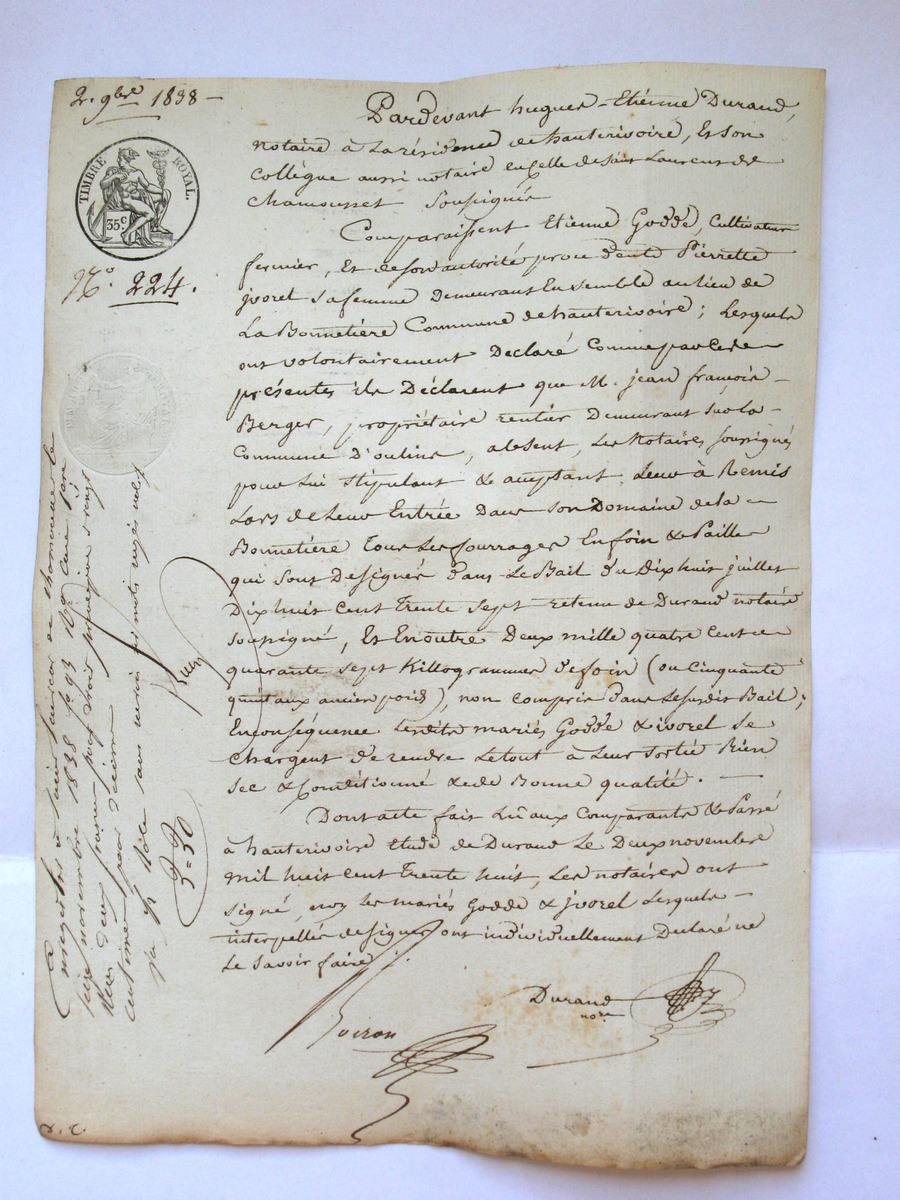 2. 9bre 1838 -
TIMBRE ROYAL.
35c.
N.° 224.
Pardevant hugues-Etiénne Durand,
notaire à La résidence de hauterivoire, Et son
Collègue aussi notaire en Celle de saint Laurent de
Chamousset Soussignés
Comparaissent Etienne Goddé, Cultivateur
fermier, Et de son autorité procédente Pierrette
jvorel sa femme Demeurant Ensemble au lieu de
La Bonnetière Commune de hauterivoire; Lesquels
ont volontairement Déclaré Comme par Ces
présentes ils Déclarent que M. jean françois
Berger, propriétaire rentier Demeurant sur la
Commune D'oulins, absent, Les Notaires soussignés
pour Lui stipulant & acceptant, Leur à Remis
Lors de Leur Entrée Dans son Domaine de la
Bonnetière Tous Les fourrages En foin & Paille
qui sont Désignés dans Le Bail du Dix huit juillet
Dix huit Cent Trente Sept retenu de Durand notaire
soussigné, Et En outre Deux mille quatre Cent
quarante sept Killogrammes de foin (ou Cinquante
quintaux ancien poids), non compris dans Le susdit Bail;
En conséquence Lesdits mariés Goddé & ivorel se
Chargent de rendre Le tout à Leur sortie Bien
sec & Conditionné & de Bonne qualité. —
Dont acte fait Lû aux Comparants & Passé
à hauterivoire Etude de Durand Le Deux novembre
mil huit cent Trente huit, Les notaires ont
signé, non les mariés Goddé & jvorel Lesquels
interpellés de signer ont individuellement Déclaré ne
Le savoir faire.
Durand
nore
Enregistré à Saint Laurent de Chamousset le
seize novembre 1838 f° 93 R°
deux francs
centimes pour décime
3=30